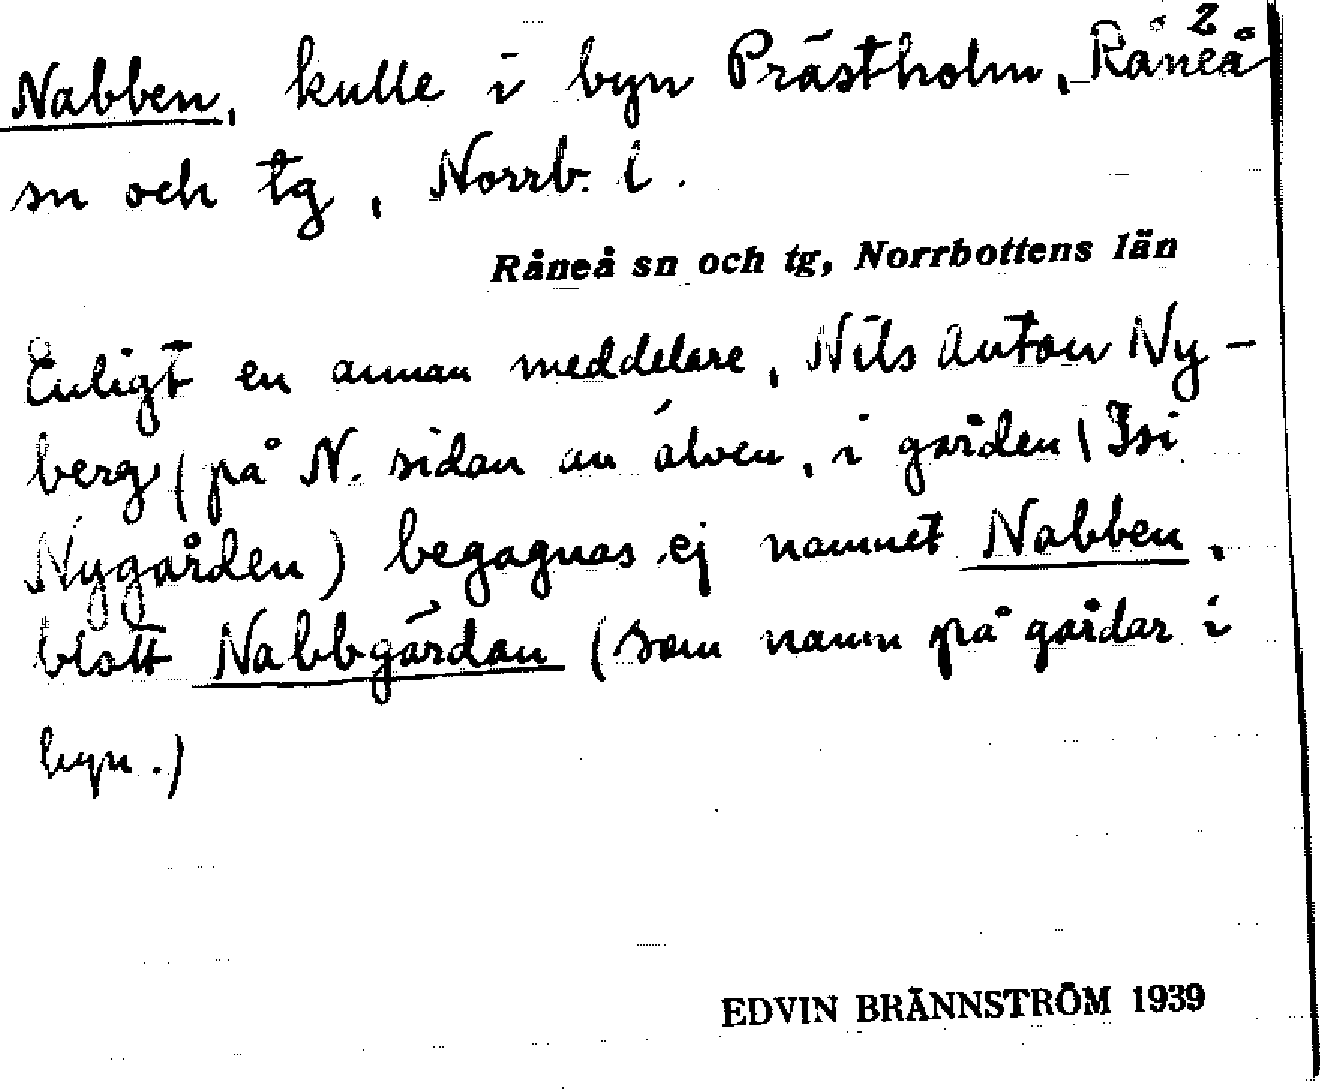 2
Nabben, kulle i byn Prästholm, Råneå
sn och tg, Norrb. l.
Råneå sn och tg, Norrbottens län
Enligt en annan meddelare, Nils Anton Ny-
berg (på N. sidan au älven, i gården (Isi
Nygården) begagnas ej namnet Nabben,
blott Nabbgårdan (som namn på gårdar i
byn.)
EDVIN BRÄNNSTRÖM 1939